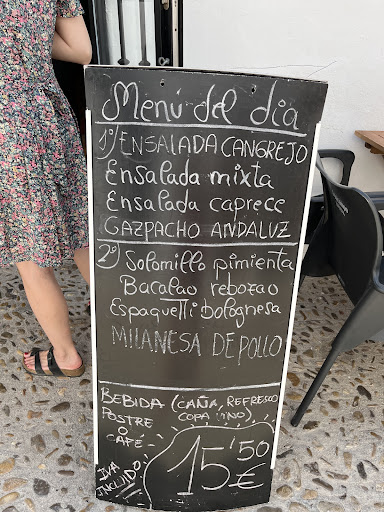 Menú del día
1º/ ENSALADA CANGREJO
Ensalada mixta
Ensalada caprece
GAZPACHO ANDALUZ
2º Solomillo pimienta
Bacalao rebozao
Espaguetti bolognesa
MILANESA DE POLLO
BEBIDA (CAÑA, REFRESCO
COPA VINO)
POSTRE
O
CAFÉ
IVA
INCLUIDO
15'50
€